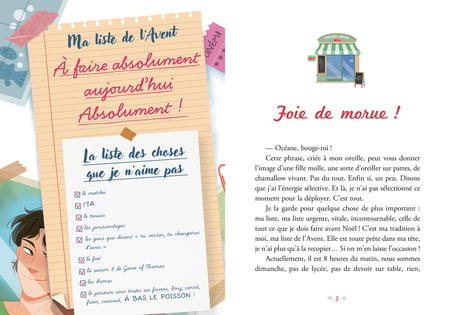 Ma liste de l'Avent
À faire absolument
aujourd'hui
Absolument !
CINÉMA
La liste des choses
que je n'aime pas
le matcha
l'IA
le tennis
les pourcentages
les gens qui disent « tu verras, tu changeras
d'avis »
le foot
la saison 8 de Game of Thrones
les drames
le poisson sous toutes ses formes, long, carré,
frais, cuisiné, À BAS LE POISSON !
Foie de morue !
— Océane, bouge-toi !
Cette phrase, criée à mon oreille, peut vous donner
l'image d'une fille molle, une sorte d'oreiller sur pattes, de
chamallow vivant. Pas du tout. Enfin si, un peu. Disons
que j'ai l'énergie sélective. Et là, je n'ai pas sélectionné ce
moment pour la déployer. C'est tout.
Je la garde pour quelque chose de plus important :
ma liste, ma liste urgente, vitale, incontournable, celle de
tout ce que je dois faire avant Noël ! C'est ma tradition à
moi, ma liste de l'Avent. Elle est toute prête dans ma tête,
je n'ai plus qu'à la recopier... Si on m'en laisse l'occasion !
Actuellement, il est 8 heures du matin, nous sommes
dimanche, pas de lycée, pas de devoir sur table, rien,
5